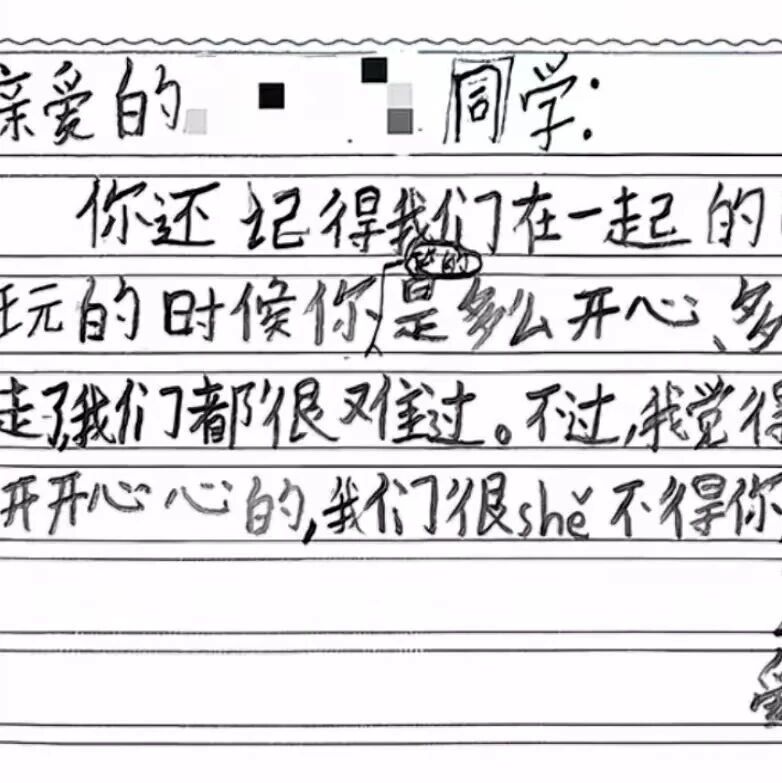 亲爱的 同学:
你还记得我们在一起的
玩的时候你是多么开心、多
走了,我们都很难过。不过,我觉得
开开心心的,我们很shě不得你,
爱